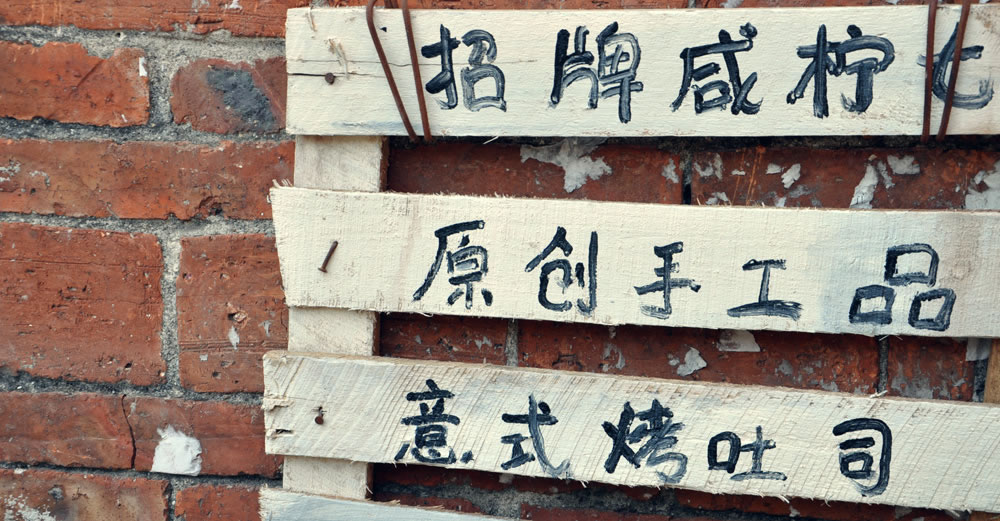 招牌咸柠七
原创手工品
意式烤吐司